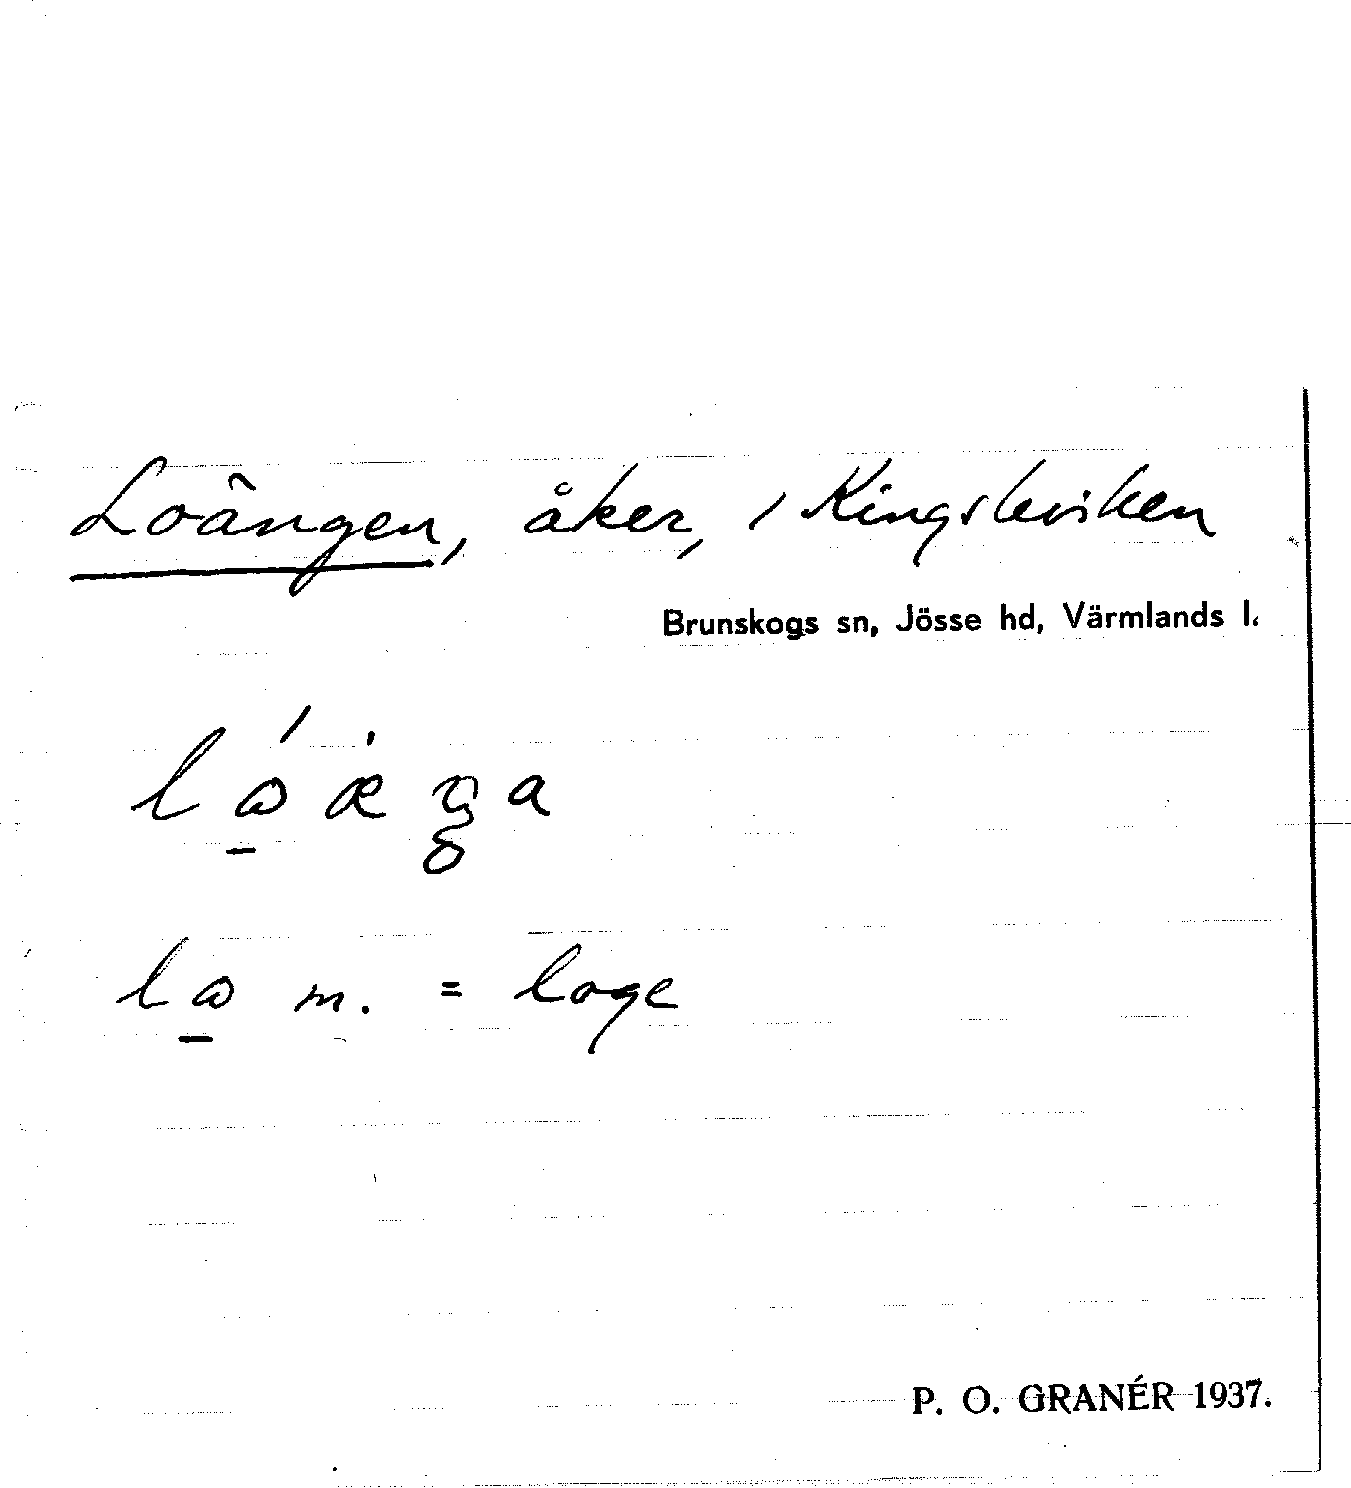 Loängen, åker, i Kingselviken
Brunskogs sn, Jösse hd, Värmlands l.
m. = loge
P. O. GRANÉR 1937.